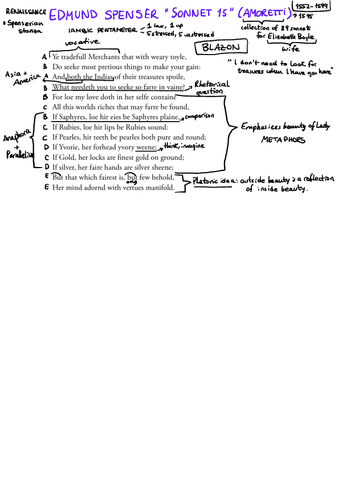 RENAISSANCE
EDMUND SPENSER "SONNET 15" (AMORETTI)
1552 - 1599
→ 1595
* Spenserian
stanza
IAMBIC PENTAMETER
1 low, 1 up
5 stressed, 5 unstressed
collection of 89 sonnets
for Elizabeth Boyle,
wife
BLAZON
vocative
"I don't need to look for
treasures when I have you here"
A Ye tradefull Merchants that with weary toyle,
B Do seeke most pretious things to make your gain:
Asia +
America
A And both the Indias of their treasures spoile,
B What needeth you to seeke so farre in vaine?
Rhetorical
question
B For loe my love doth in her selfe containe
C All this worlds riches that may farre be found,
B If Saphyres, loe hir eies be Saphyres plaine,
→ comparison
C If Rubies, loe hir lips be Rubies sound;
C If Pearles, hir teeth be pearles both pure and round;
D If Yvorie, her forhead yvory weene;
→ think, imagine
C If Gold, her locks are finest gold on ground;
D If silver, her faire hands are silver sheene;
Anaphora
+
Parallelism
Emphasices beauty of Lady
METAPHORS
E But that which fairest is, but few behold,
E Her mind adornd with vertues manifold.
Platonic idea: outside beauty is a reflection
of inside beauty.